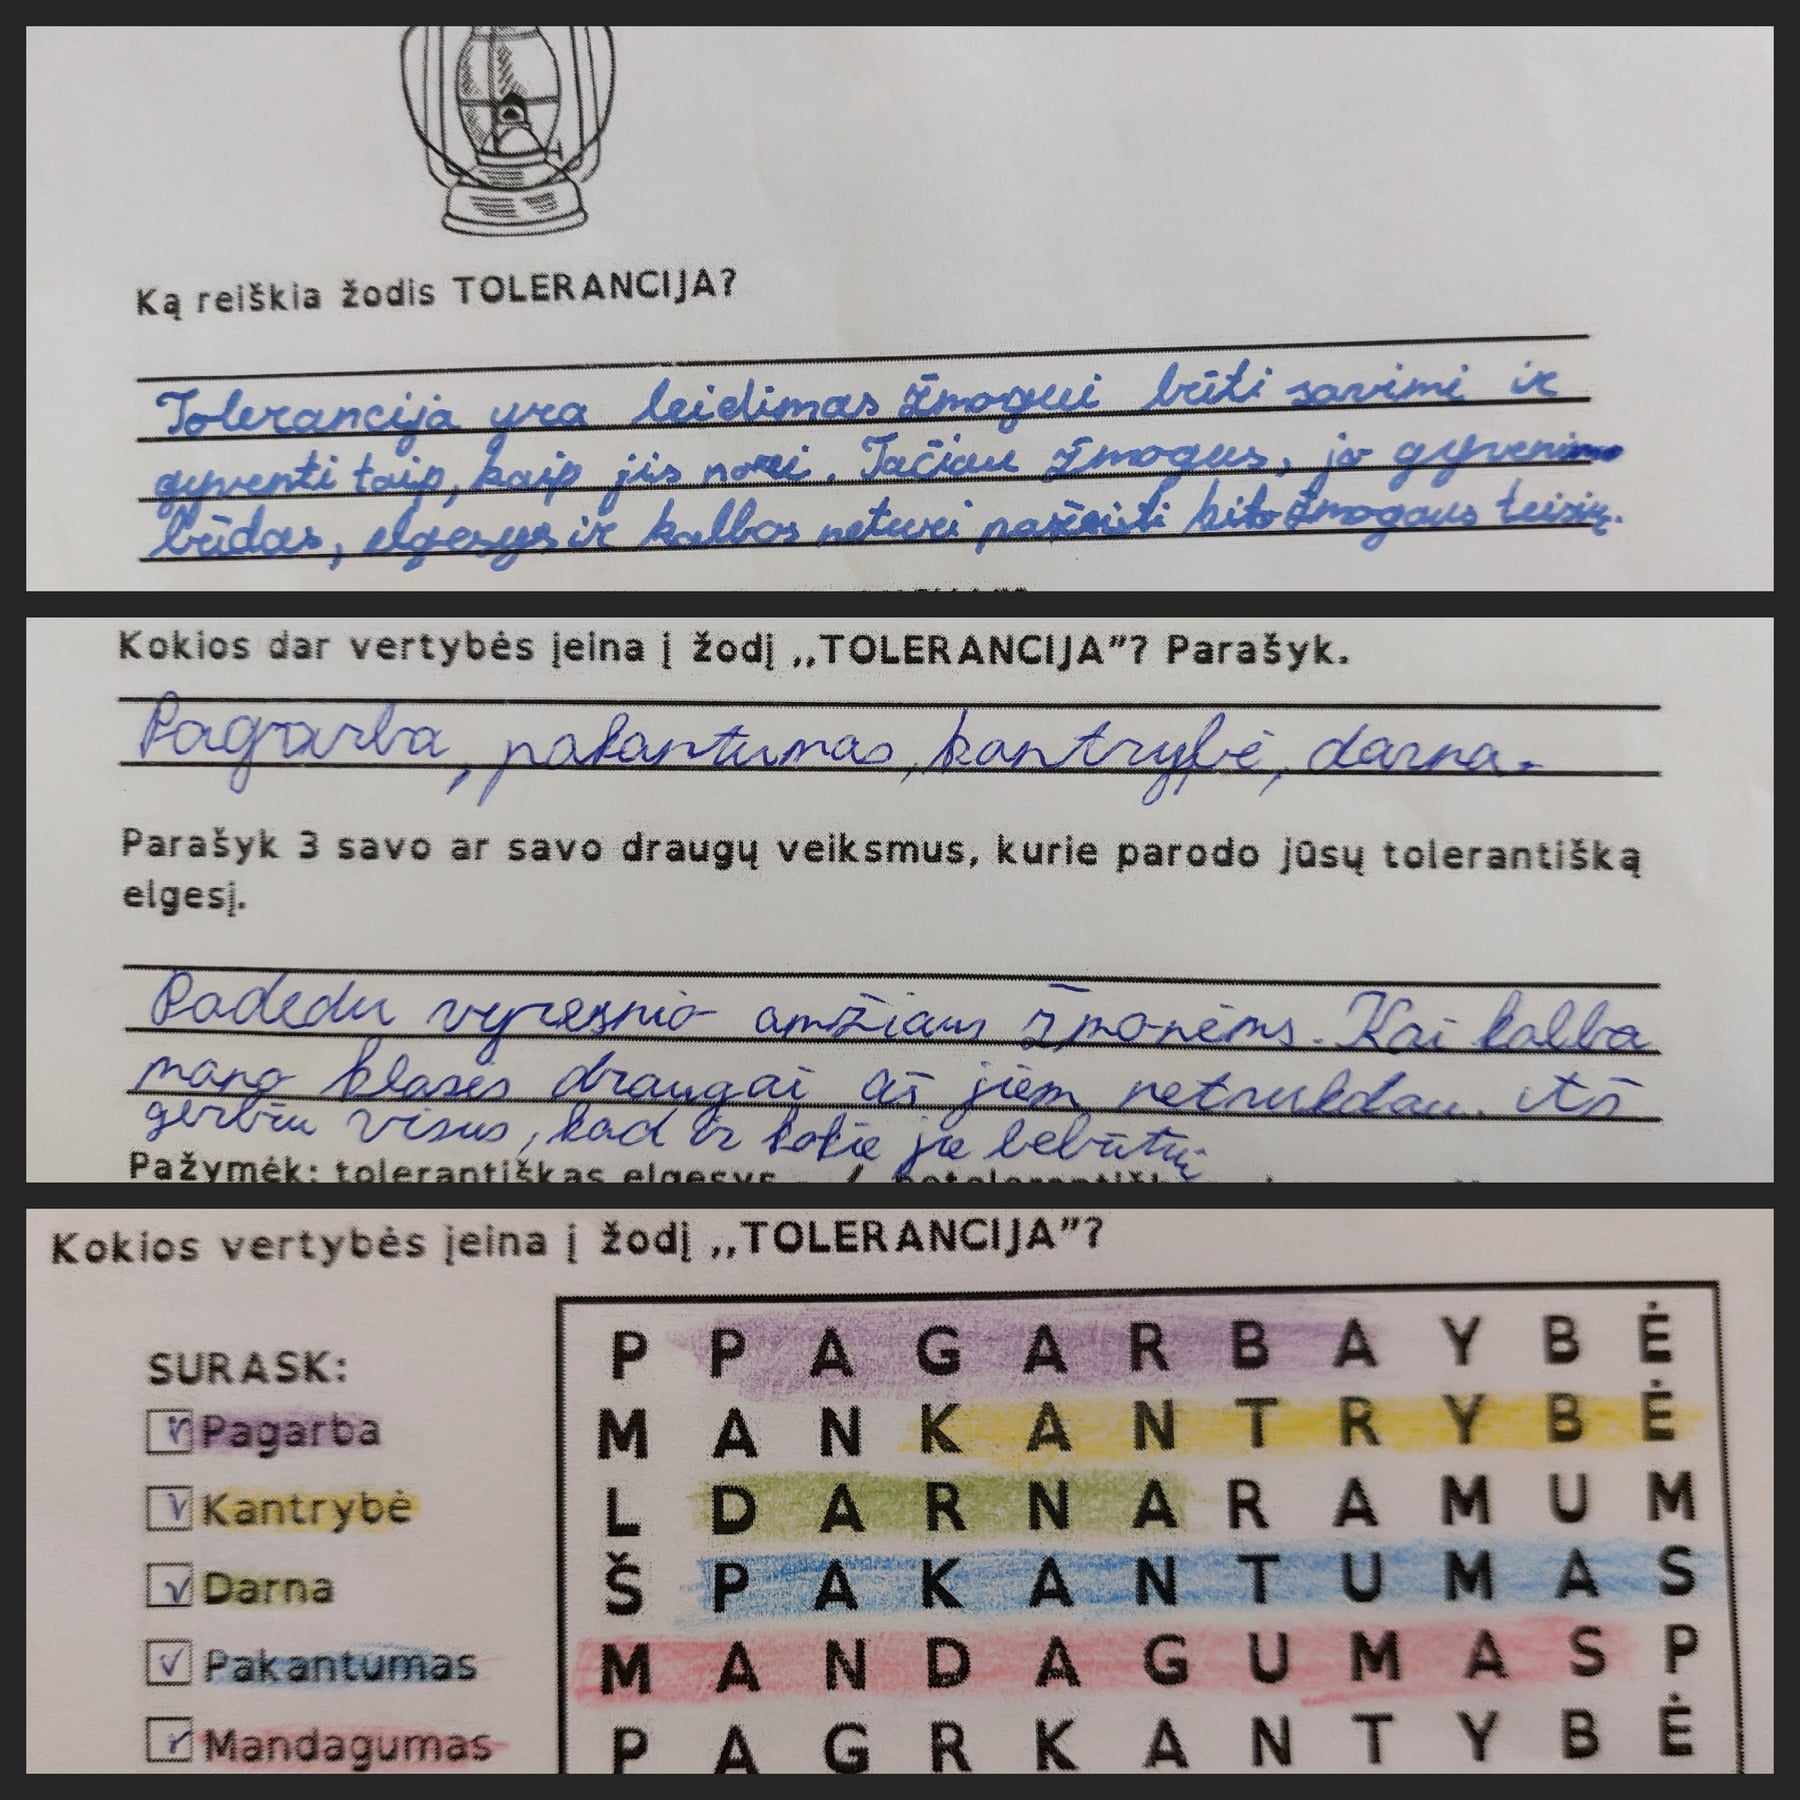 Ką reiškia žodis TOLERANCIJA?
Tolerancija yra leidimas žmogui būti savimi ir
gyventi taip, kaip jis nori. Tačiau žmogus, jo gyvenimo
būdas, elgesys ir kalbos neturi pažeisti kito žmogaus teisių.
Kokios dar vertybės įeina į žodį ,,TOLERANCIJA"? Parašyk.
Pagarba, pakantumas, kantrybė, darna.
Parašyk 3 savo ar savo draugų veiksmus, kurie parodo jūsų tolerantišką
elgesį.
Padedu vyresnio amžiaus žmonėms. Kai kalba
mano klasės draugai aš jiem netrukdau. Aš
gerbiu visus, kad ir kokie jie bebūtų
Pažymėk: tolerantiškas elgesys
Kokios vertybės įeina į žodį ,,TOLERANCIJA"?
SURASK:
Pagarba
Kantrybė
Darna
Pakantumas
Mandagumas
P P A G A R B A Y B Ė
M A N K A N T R Y B Ė
L D A R N A R A M U M
Š P A K A N T U M A S
M A N D A G U M A S P
P A G R K A N T Y B Ė